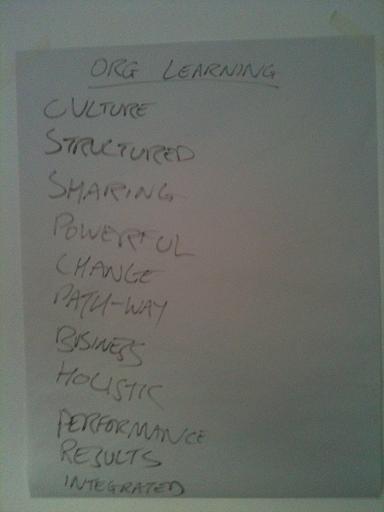 ORG LEARNING
CULTURE
STRUCTURED
SHARING
POWERFUL
CHANGE
PATH-WAY
BUSINESS
HOLISTIC
PERFORMANCE
RESULTS
INTEGRATED